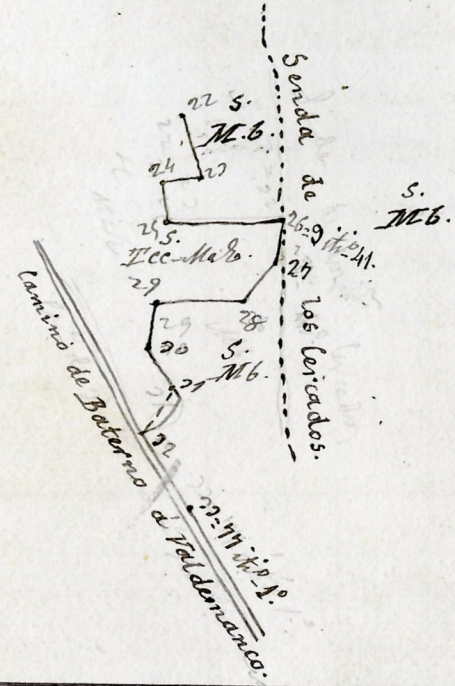 Senda de los Cercados.
22
S.
M.b.
23
24
25
S.
Ecc-Mat.
S.
Mb.
26=9 itº-41.
27
28
29
30
S.
Mb.
31
32
33=44 itº-1º.
Camino de Baterno á Valdemanco.